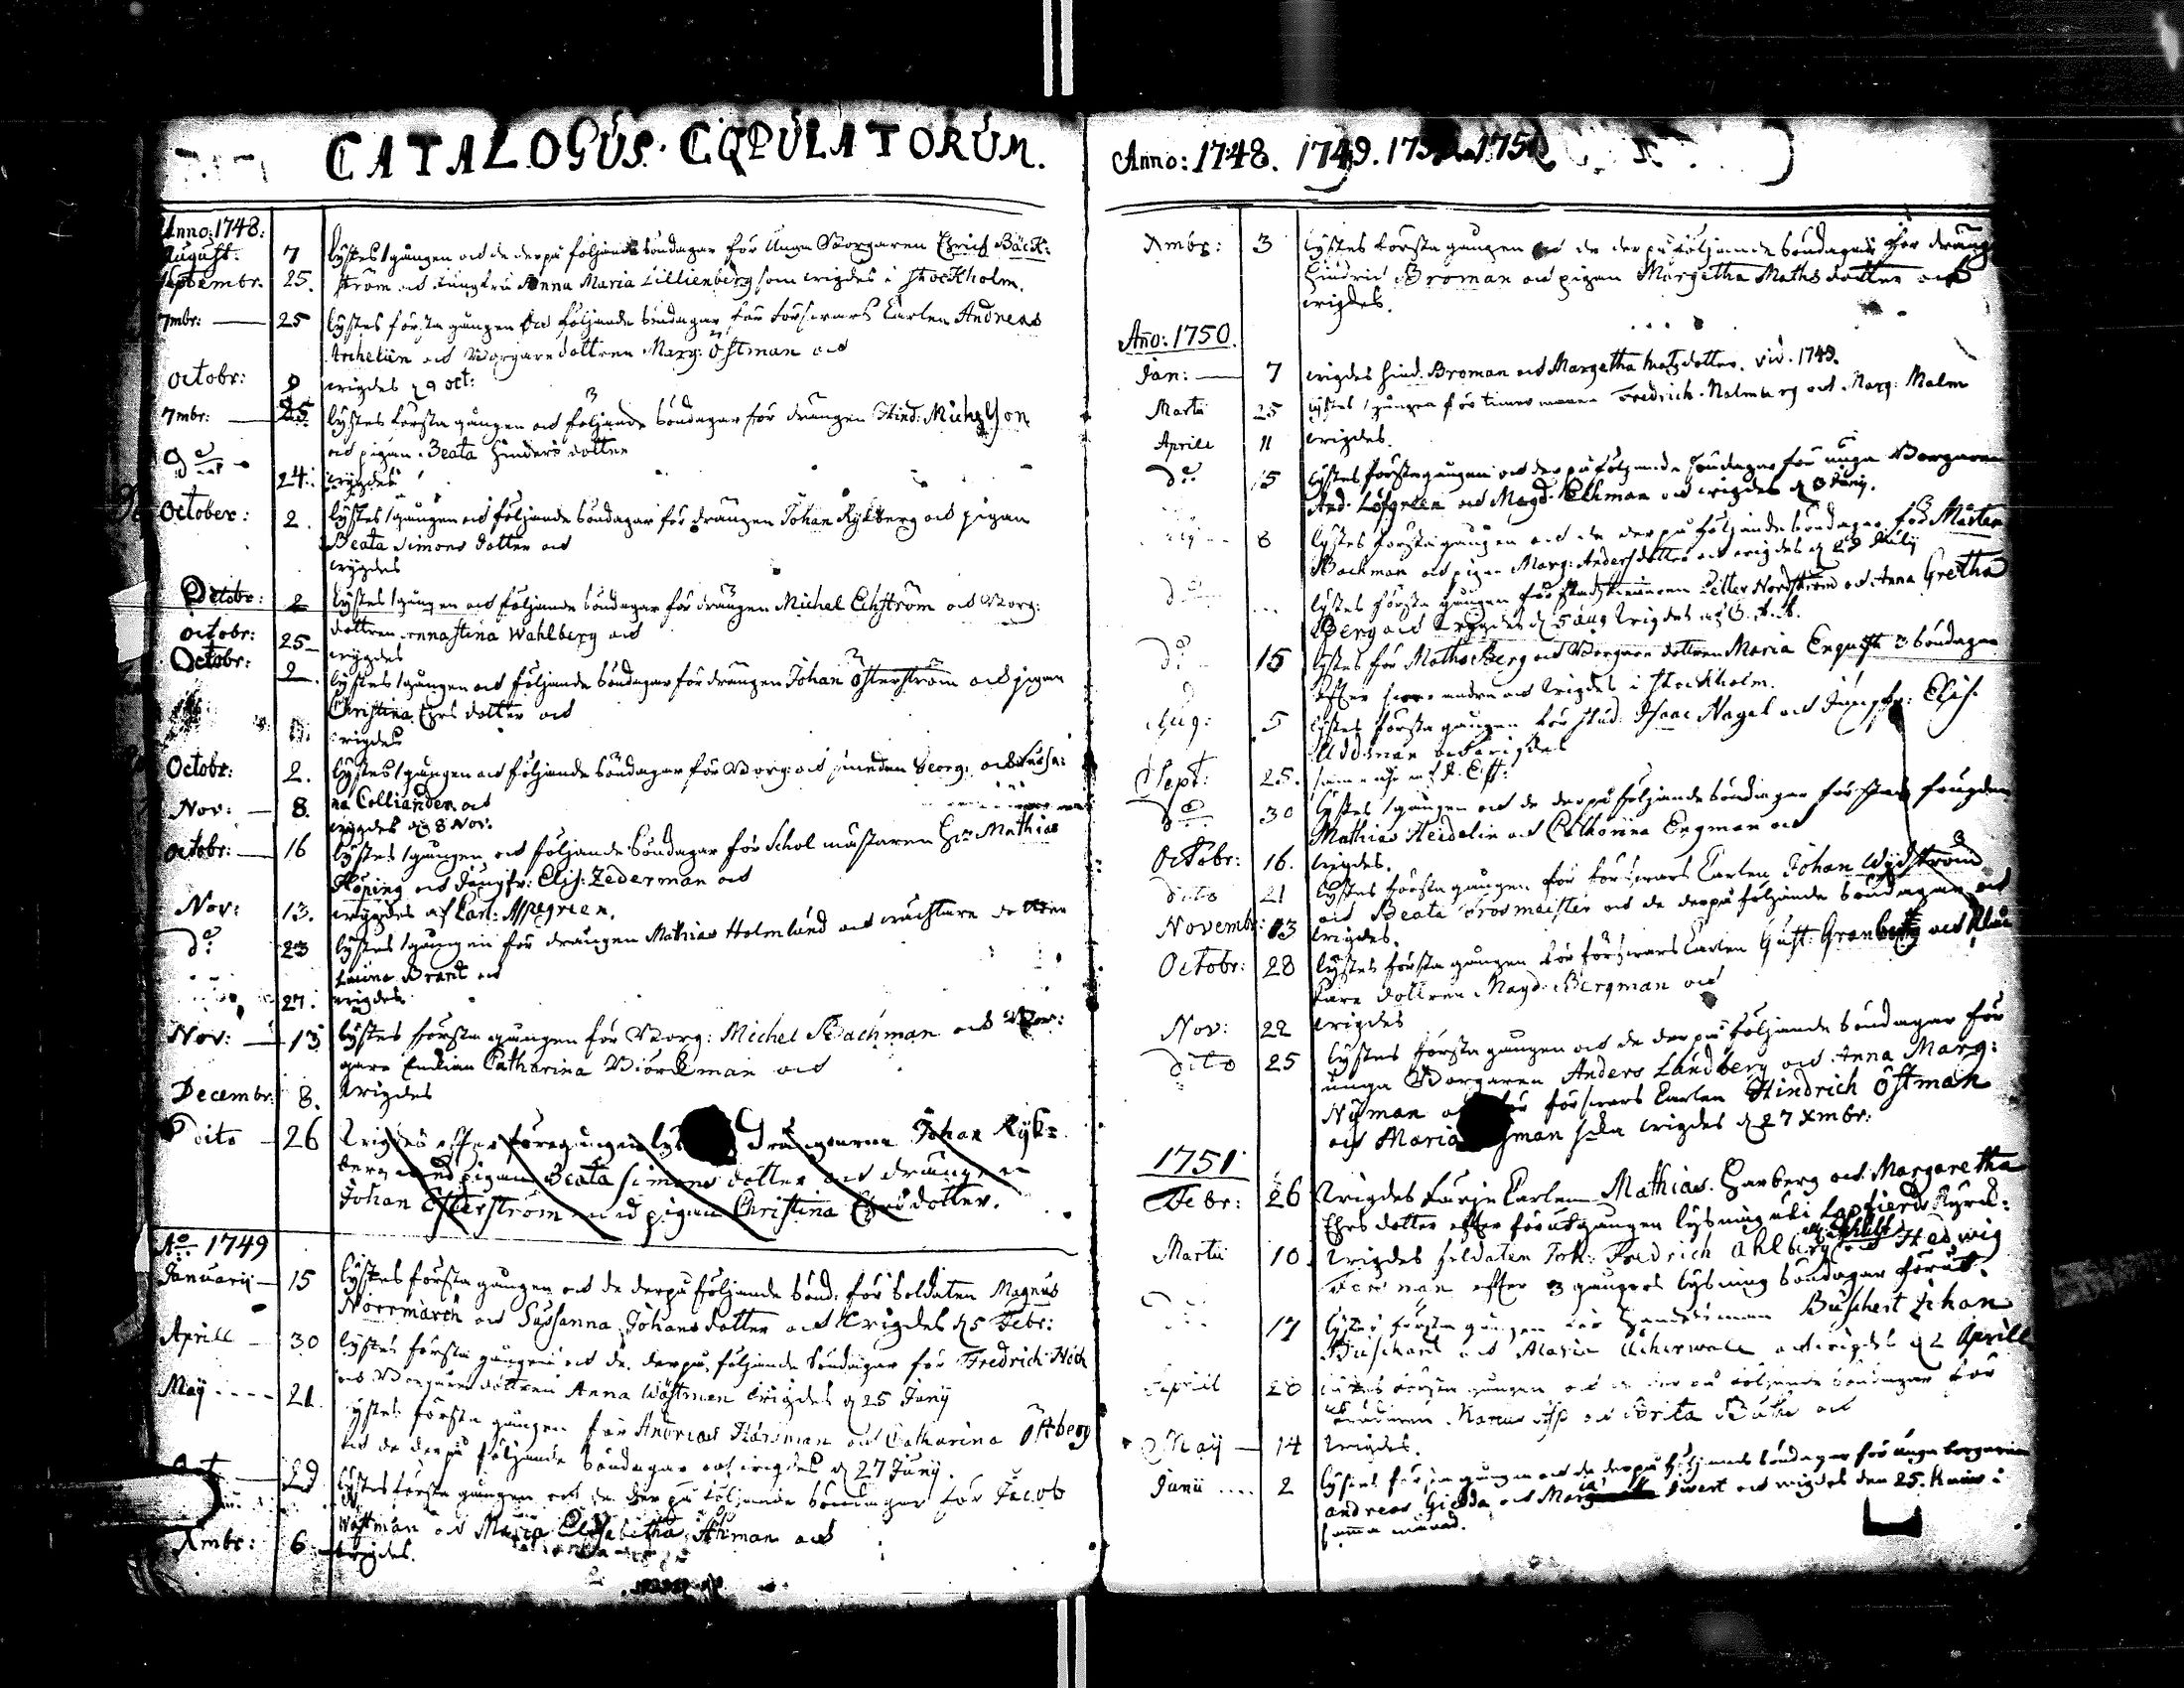 CATALOGUS COPULATORUM.
Anno: 1748.
August. 7 lystes 1 gången och de derpå föliande söndagar för Unga Borgaren Ehrich Bäck:
Septembr. 25. ström och Jungfru Anna Maria Lillienberg som wigdes i Stockholm.
7mbr: 25 lystes första gången och föliande söndagar för Förswars Karlen Andreas
Archelin och Borgare dottren Marg: Östman och
Octobr: 9 wigdes d 9 oct:
7mbr: 25 lystes första gången och föliande söndagar för drängen Hind: Michelson
och pigan Beata Hinders dotter
do 24. wigdes
October: 2. lystes 1 gången och föliande söndagar för drängen Johan Rykberg och pigan
Beata Simons dotter och
wigdes
Octobr: 2 lystes 1 gången och föliande söndagar för drängen Michel Ekström och Borg:
dottren Annastina Wahlberg och
Octobr: 25 wigdes
Octobr: 2. lystes 1 gången och föliande söndagar för drängen Johan Österström och pigan
Christina Ehrs dotter och
wigdes
Octobr: 2. lystes 1 gången och föliande söndagar för Borg: och smeden Georg:
na Collianden och
Nov: 8. wigdes d 8 Nov.
Octobr: 16 lystes 1 gången och föliande Söndagar för Schol mästaren Hr Mathias
Höping och Jungfr: Elis: Zederman och
Nov: 13. wigdes af Carl: Appegreen.
do 23 lystes 1 gången för drängen Mathias Holmlund och wachtare dotter
Brant och
27. wigdes
Nov: 13 lystes första gången för Borg: Michel Backman och Bor:
gare Enkian Catharina Biörkman och
Decembr: 8. wigdes
dito 26 wigdes efter föregången lys drängarna Johan Ryk=
berg med pigan Beata Simons dotter och drängen
Johan Österström med pigan Christina Ehrs dotter.
Ao 1749
Januarij 15 lystes första gången och de derpå föliande sönd. för Soldaten Magnus
Norrmarck och Sussanna Johans dotter och wigdes d 5 Febr:
Aprill 30 lystes första gången och de derpå föliande söndagar för Fredrich Höök
och Borgare dottren Anna Wästman wigdes d 25 Junij
Maij 21. lystes första gången för Andreas och Catharina Östberg
och de derpå föliande söndagar och wigdes d 27 Junij.
29 lystes första gången och de derpå föliande söndagar för Jacob
Wästman och Maria Elisabetha Åhman och
Xmbr: 6 wigdes.
Anno: 1748. 1749.
Xmbr: 3 lystes första gången och de derpå föliande söndagar för dräng
Hindric Broman och pigan Margetha Mathsdotter och
wigdes.
Año: 1750.
Jan: 7 wigdes Hind. Broman och Margetha Matsdotter. vid. 1749.
Martii 25 lystes 1 gången för timermannen Fredrich Malmberg och Marg: Malm
Aprill 11 wigdes.
do 15 lystes första gången och derpå föliande söndagar för unga Borgaren
And. Löfgreen och Magd. Ekman och wigdes d 8 Junij.
8 lystes första gången och de derpå föliande söndagar för Mårten
Backman och pigan Marg: Andersdotter och wigdes d 29 Julij
lystes första gången för Petter Nordström och Anna Gretha
Berg och
do 15 lystes för Maths Berg och Borgare dottren Maria Enquist 3 söndagar
och wigdes i Stockholm.
Aug: 5 lystes första gången för stud: Isaac Nagel och Jungfr: Elis.
Uddman och wigdes
Sept: 25.
do 30 lystes 1 gången och de derpå föliande söndagar för stads fougden
Mathias Heidelin och Catharina Engman och
Octobr: 16. wigdes.
dito 21 lystes första gången för Förswars Karlen Johan Wijdström
och Beata Trosmeister och de derpå föliande söndagar och
Novembr: 13 wigdes.
Octobr: 28 lystes första gången för förswars Karlen Gust: Granberg och
kare dottren Magd: Bergman och
Nov: 22 wigdes
dito 25 lystes första gången och de derpå föliande söndagar för
unga Borgaren Anders Landberg och Anna Marg:
Nyman och för förswars Karlen Hindrich Östman
och Maria wigdes d 27 Xmbr:
1751
Febr: 26 wigdes Karlen Mathias Harberg och Margaretha
Ehrs dotter efter förutgången lysning uti Lapfierds Kyrck:
Martii 10. wigdes soldaten Joh: Fredrich Ahlberg och Hedwig
efter 3 gångers lysning söndagar förut.
17 lystes första gången för Handelsman Buschert Johan
Buschert och Maria Åkerwall och wigdes d 2 Aprill
Aprill 28 lystes första gången och de derpå föliande söndagar för
Marcus Asp och Brita och
Maij 14 wigdes.
Junii 2 lystes första gången och de derpå föliande söndagar för unga borgaren
Andreas Giedda och Maria Sivert och wigdes den 25. Kniw i
samma månad.